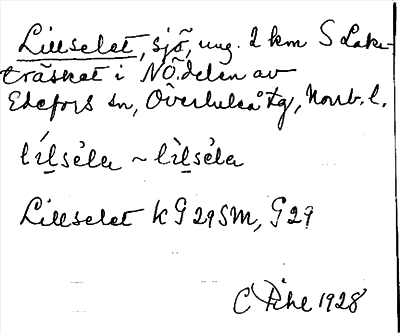 Lillselet, sjö, ung. 2 km S Lake-
träsket i NÖ.delen av
Edefors sn, Överluleå tg, Norrb. l.
lílsèla ~ lìlsėla
Lillselet k G 29 SM, G 29
C Pihl 1928